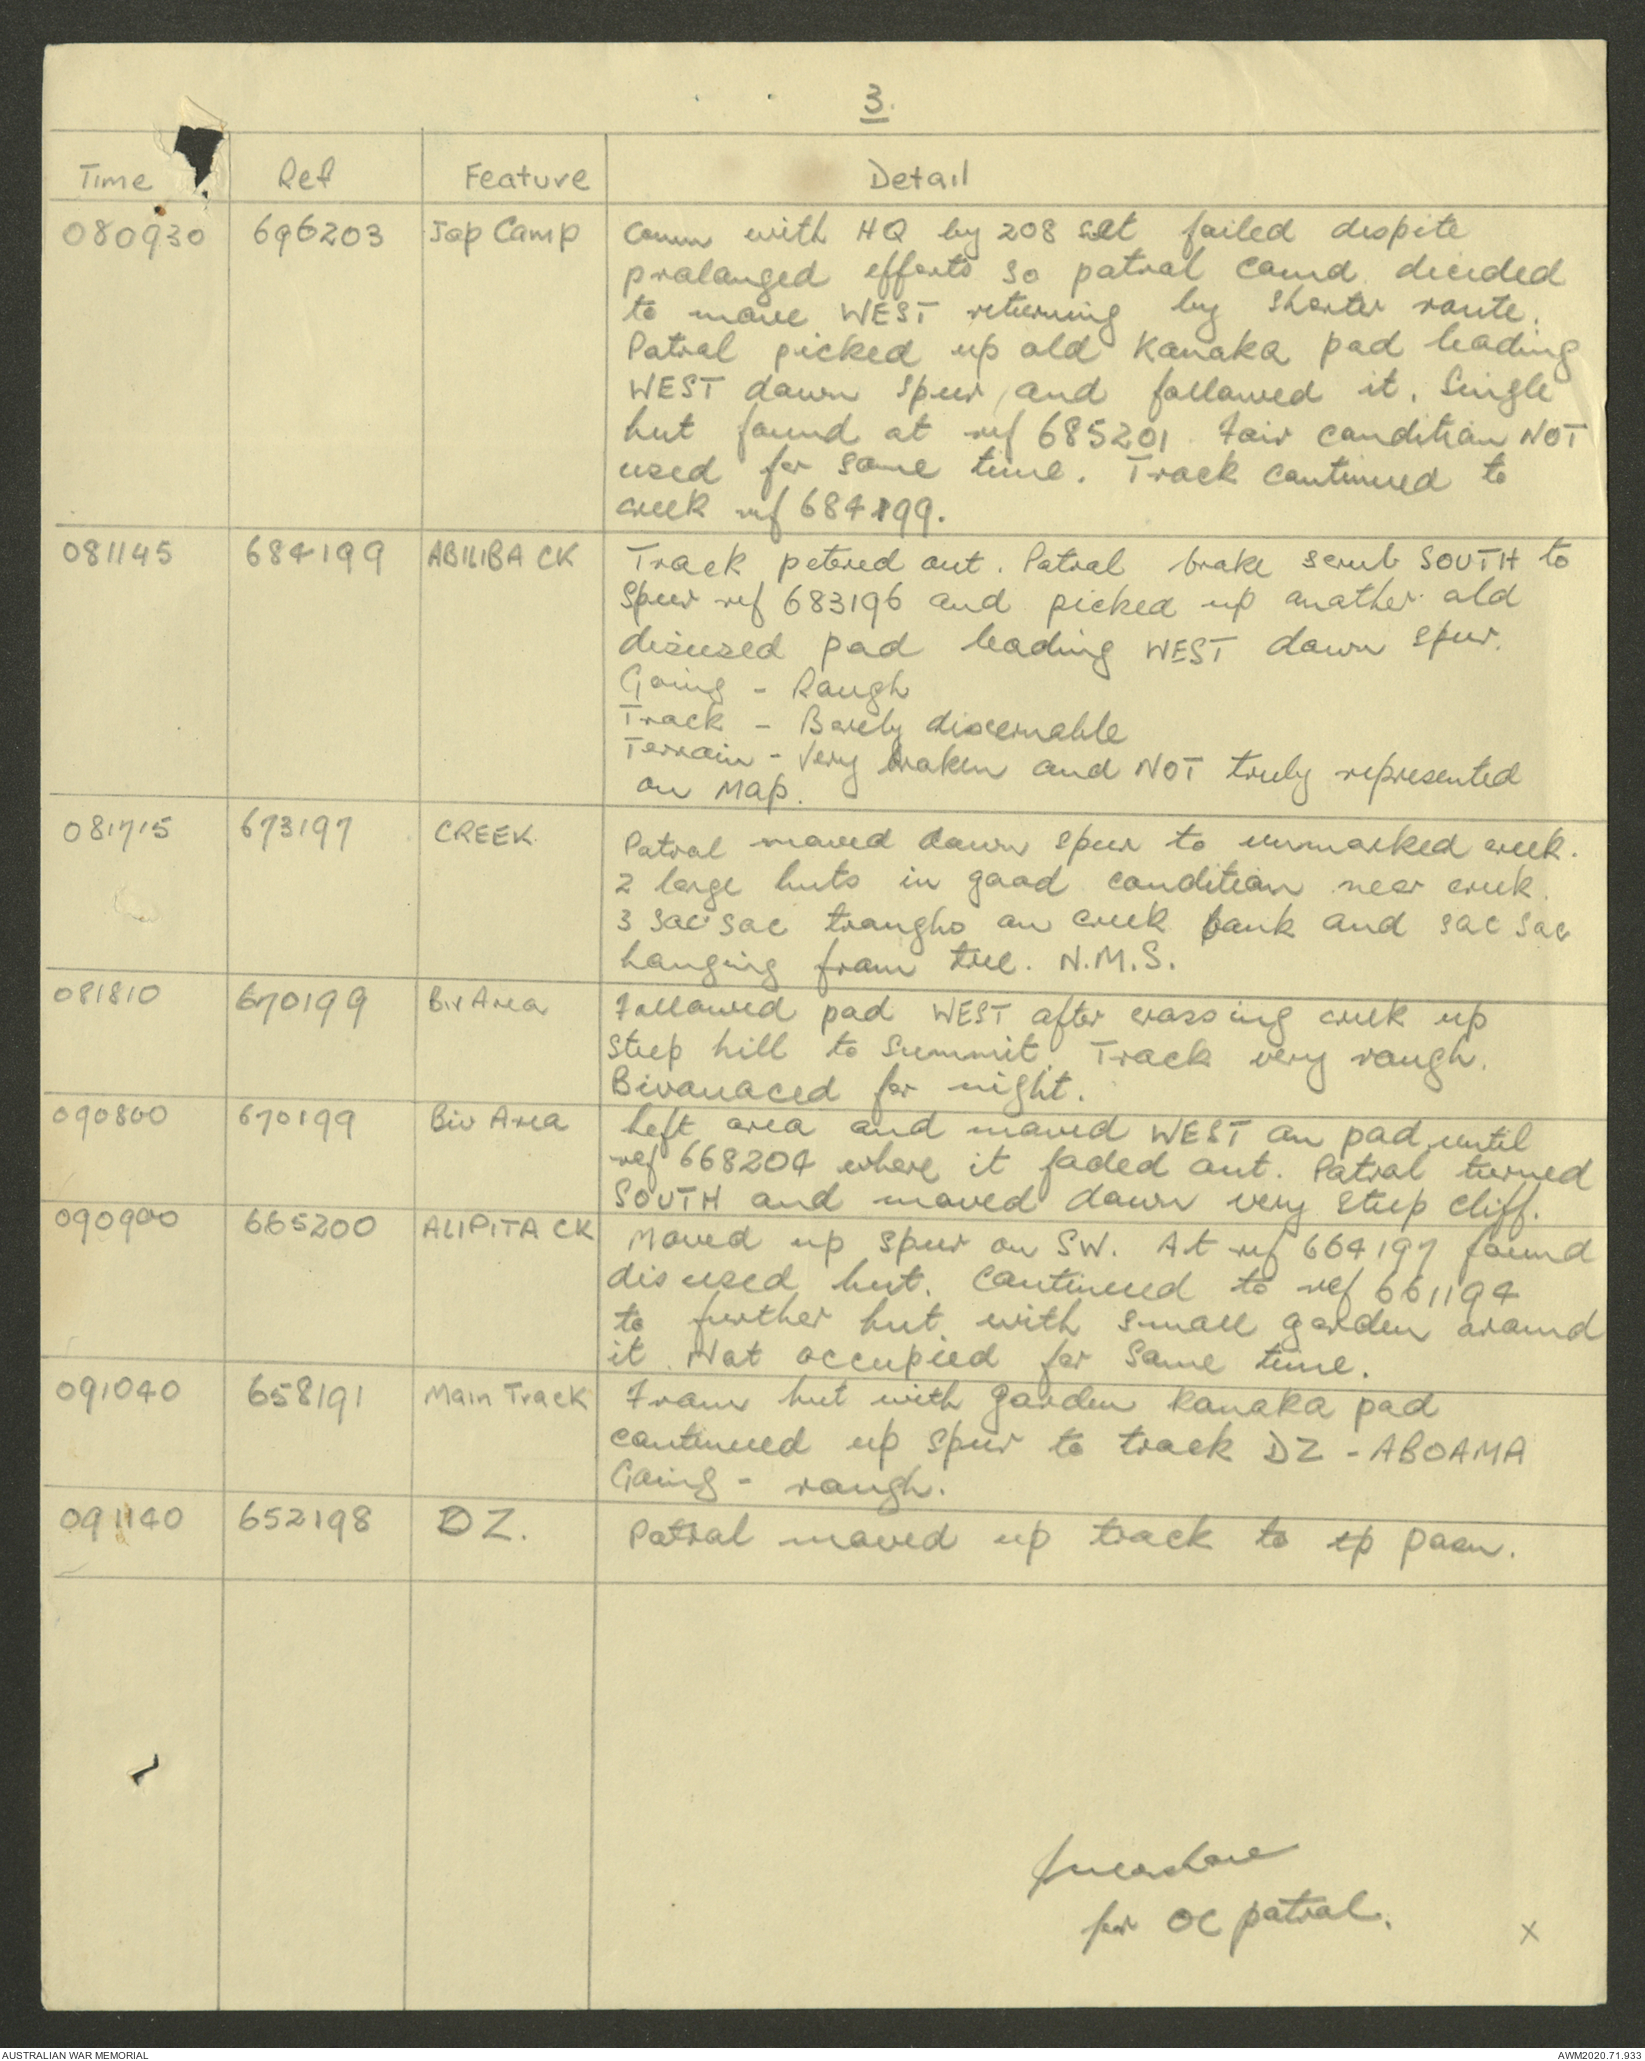 3.
Time Ref Feature Detail
080930 696203 Jap Camp Comm with HQ by 208 set failed despite
prolonged efforts so patrol comd. decided
to move WEST returning by shorter route.
Patrol picked up old Kanaka pad leading
WEST down spur, and followed it. Single
hut found at ref 685201. Fair condition NOT
used for some time. Track continued to
creek ref 684199.
081145 684199 ABILIBA CK Track petered out. Patrol broke scrub SOUTH to
Spur ref 683196 and picked up another old
disused pad leading WEST down spur.
Going - Rough
Track - Barely discernable
Terrain - Very broken and NOT truly represented
on Map.
081715 673197 CREEK. Patrol moved down spur to unmarked creek.
2 large huts in good condition near creek.
3 sac sac troughs on creek bank and sac sac
hanging from tree. N.M.S.
081810 670199 Biv Area Followed pad WEST after crossing creek up
steep hill to summit. Track very rough.
Bivouaced for night.
090800 670199 Biv Area Left area and moved WEST on pad until
ref 668204 where it faded out. Patrol turned
SOUTH and moved down very steep cliff.
090900 665200 ALIPITA CK Moved up spur on SW. At ref 664197 found
disused hut. Continued to ref 661194
to further hut with small garden around
it. Not occupied for some time.
091040 658191 Main Track From hut with garden Kanaka pad
continued up spur to track DZ - ABOAMA
Going - rough.
091140 652198 DZ. Patrol moved up track to tp posn.
for OC patrol.
X
AUSTRALIAN WAR MEMORIAL AWM2020.71.933